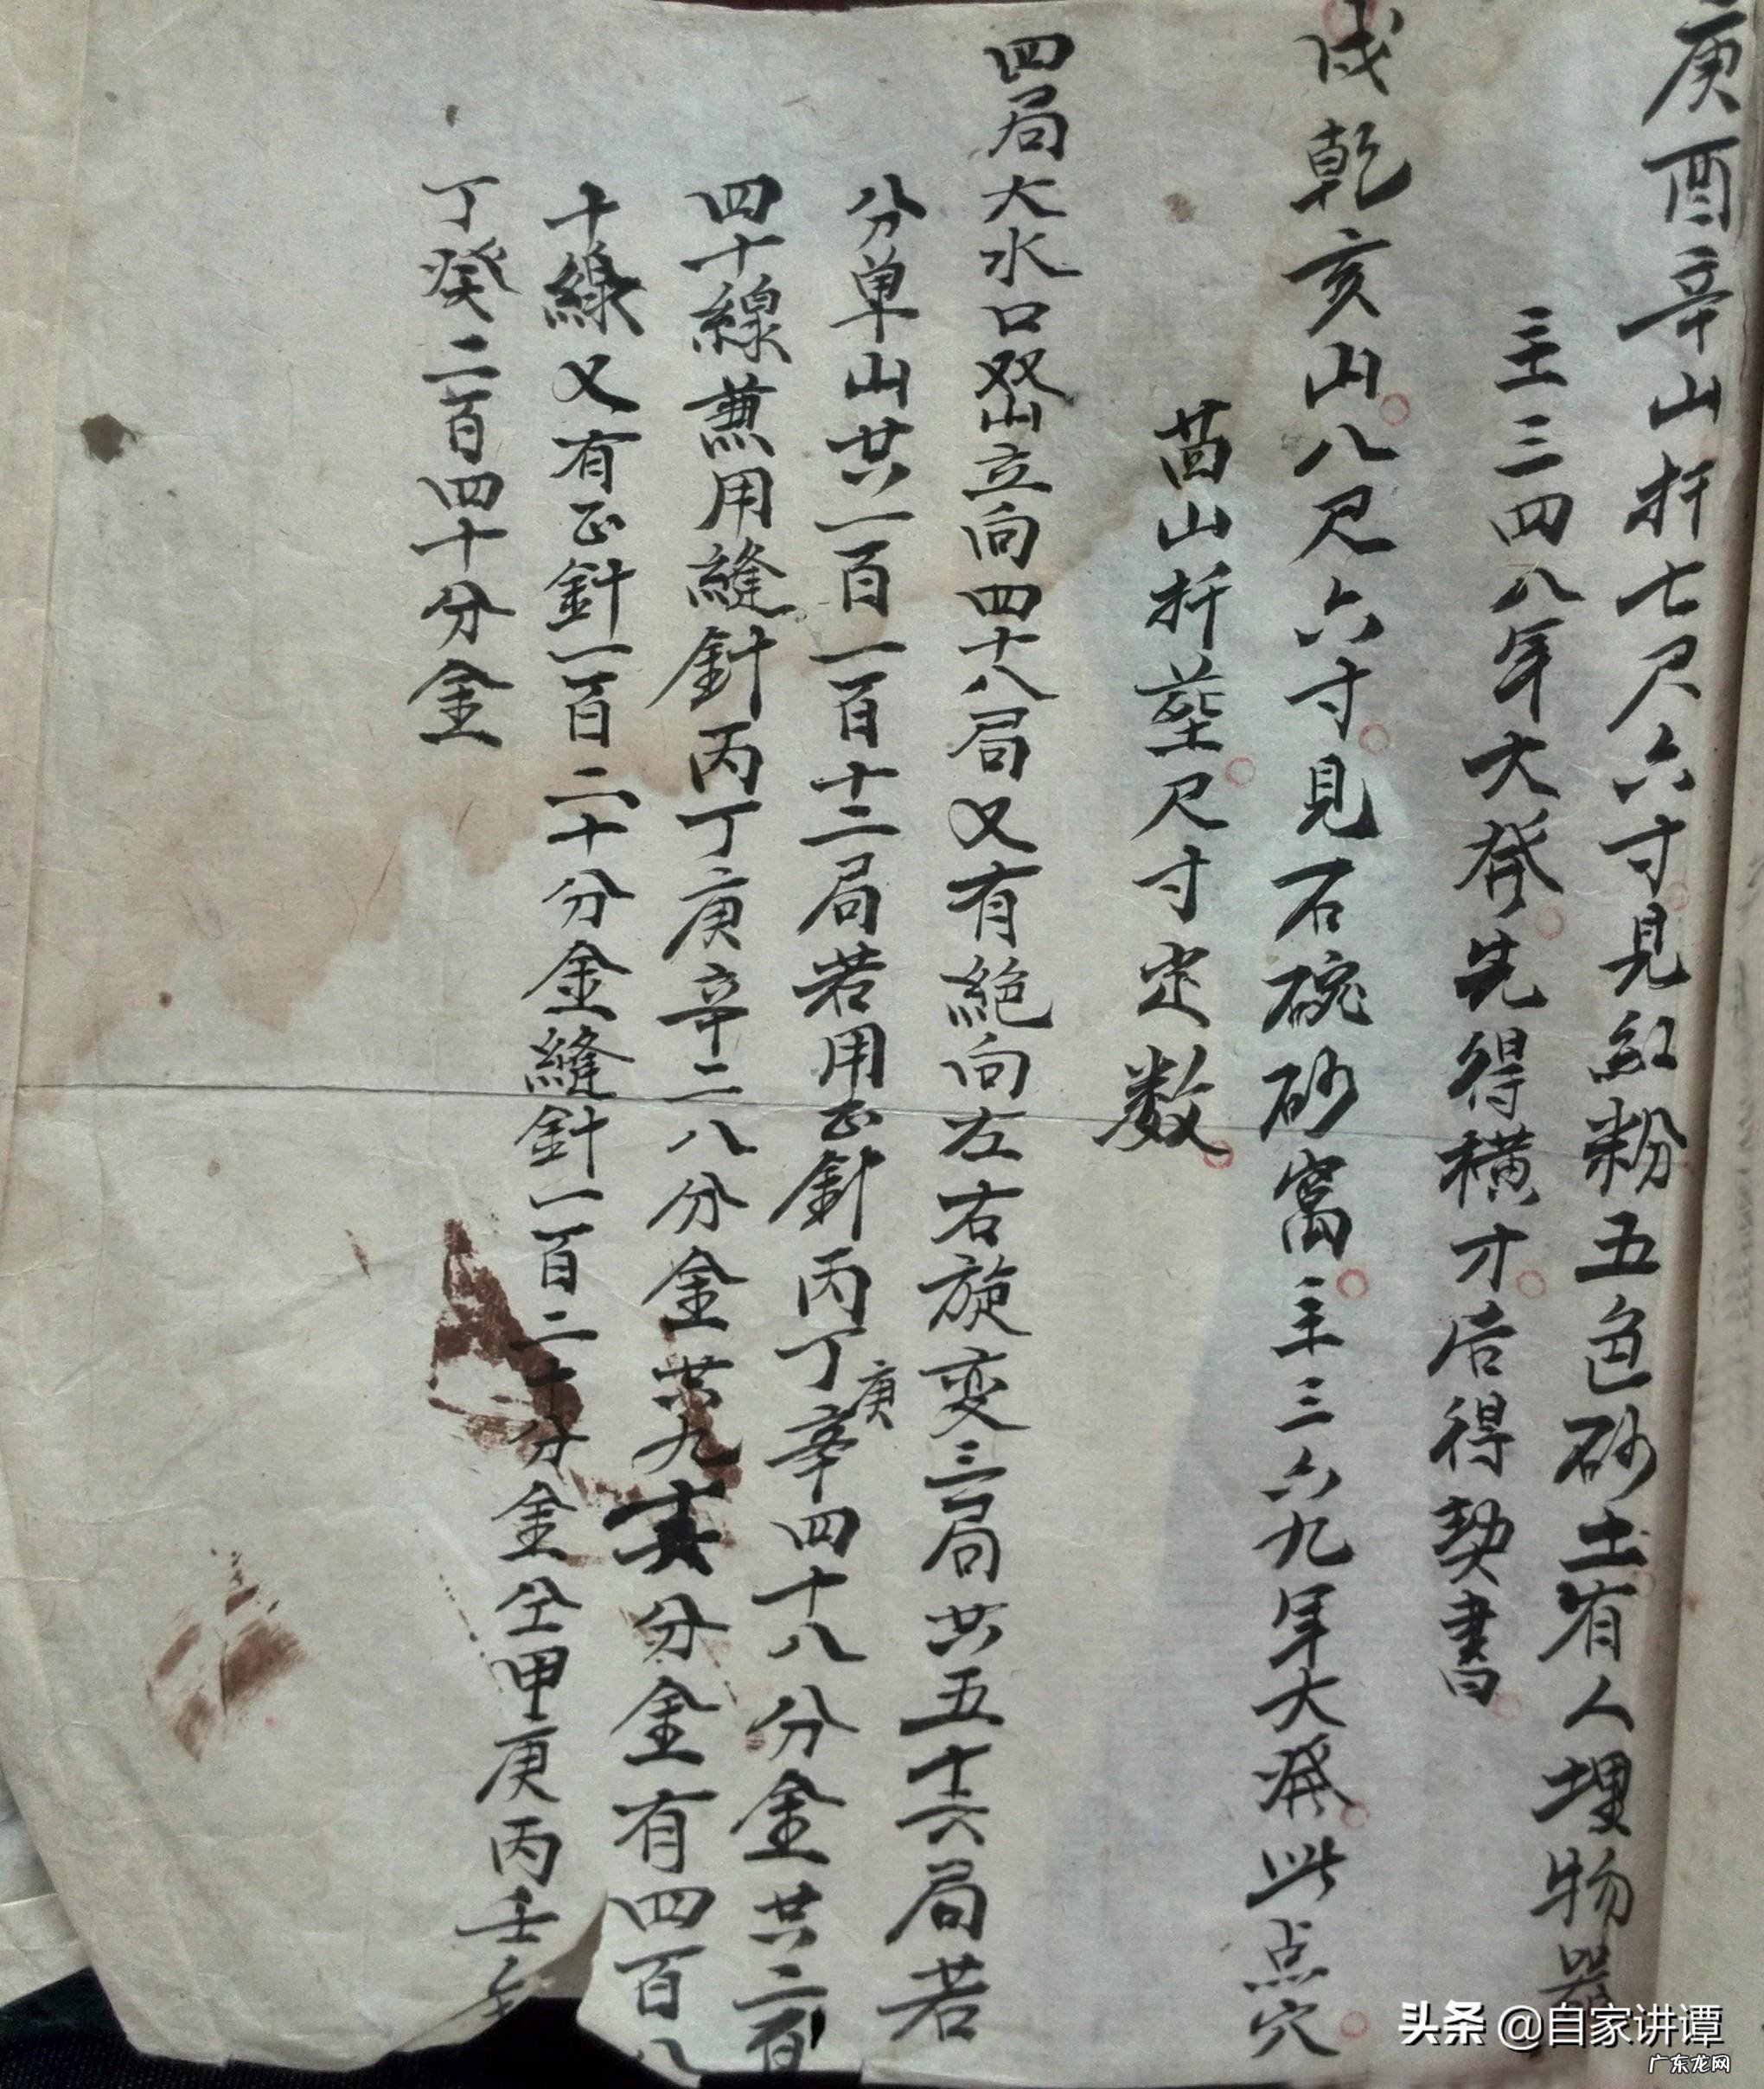 庚酉辛山扦七尺六寸見紅粉五色砂土有人埋物器
主三四八年大發先得横才后得契書
戌乾亥山八尺六寸見石碗砂窩主三六九年大發此点穴
苗山扦塟尺寸定数
四局大水口双山立向四十八局又有絕向左右旋变三局共五十六局若
分单山共一百一百十二局若用正針丙丁庚辛四十八分金共二百
四十線兼用縫針丙丁庚辛二八分金共九六分金有四百八
十線又有正針一百二十分金縫針一百二十分金仝甲庚丙壬
丁癸二百四十分金
头条 @自家讲谭
广东龙网